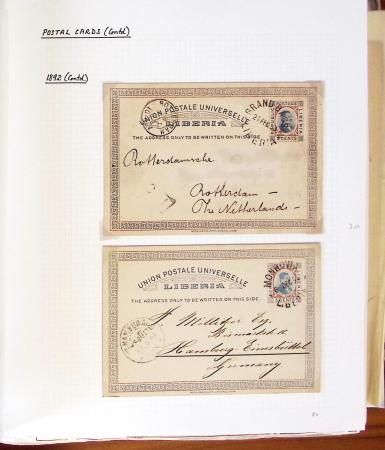 POSTAL CARDS (Contd)
1892 (Contd)
UNION POSTALE UNIVERSELLE
LIBERIA
THE ADDRESS ONLY TO BE WRITTEN ON THIS SIDE.
GRAND
LIBERIA
POSTAGE
LIBERIA
3 CENTS
Rotterdamsche
Rotterdam –
The Netherlands –
UNION POSTALE UNIVERSELLE
LIBERIA
THE ADDRESS ONLY TO BE WRITTEN ON THIS SIDE.
MONROVIA
CENTS
HAMBURG
Esq.
Hamburg-Eimsbüttel
Germany